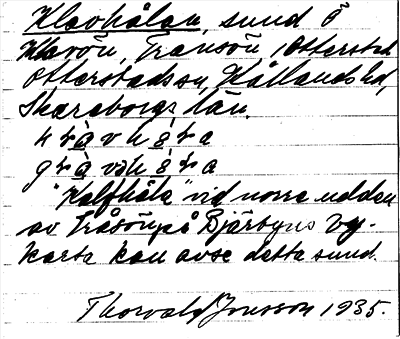 Klovhålan, sund Ö
Klovön, Transön i Otterst.
Otterstads sn, Kållands hd,
Skaraborgs län.
"Kalfhåla" vid norra udden
av Tråsön på Bjärbyns bg.
karta kan avse detta sund.
Thorvald Jonsson 1935.